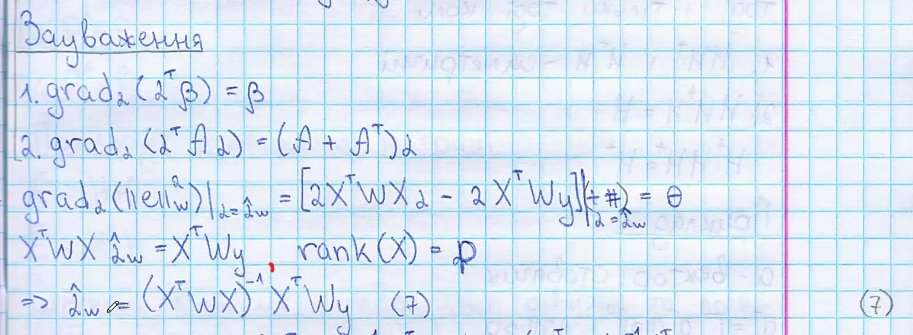 Зауваження
1. grad₂(2ᵀβ) = β
2. grad₂(2ᵀA2) = (A + Aᵀ)2
grad₂(||e||²w)|2=2̂w = [2XᵀWX2 - 2XᵀWy]|2=2̂w = θ
XᵀWX 2̂w = XᵀWy, rank(X) = p
=> 2̂w = (XᵀWX)⁻¹ XᵀWy (7) (7)